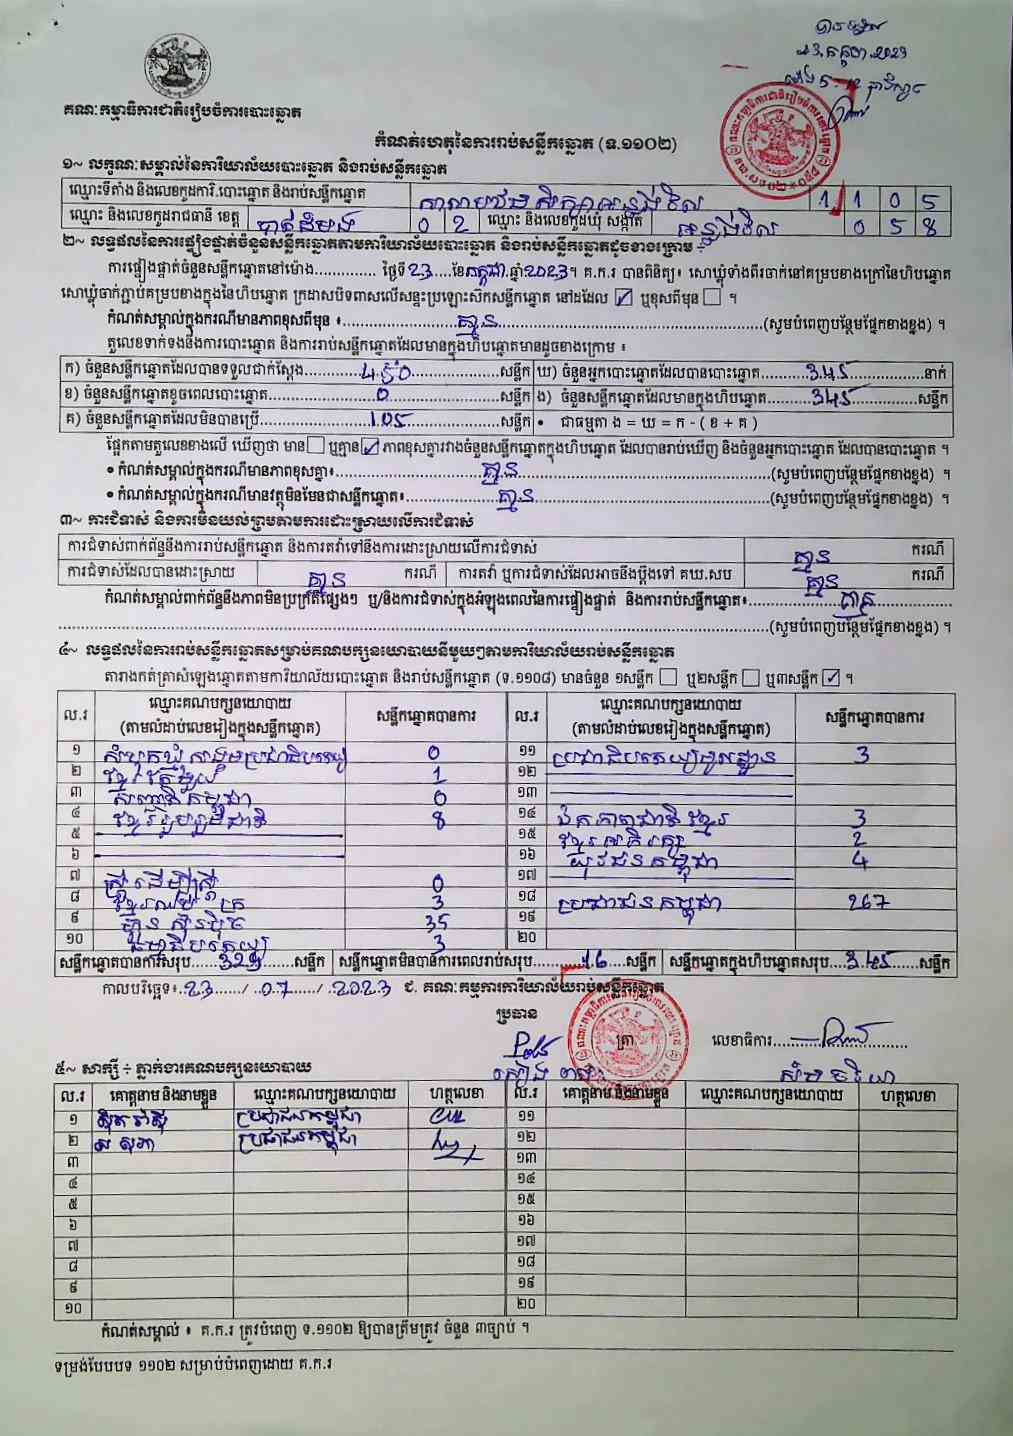 គណៈកម្មាធិការជាតិរៀបចំការបោះឆ្នោត
កំណត់ហេតុនៃការរាប់សន្លឹកឆ្នោត (ទ.១១០២)
១~ លក្ខណៈសម្គាល់នៃការិយាល័យបោះឆ្នោត និងរាប់សន្លឹកឆ្នោត
ឈ្មោះទីតាំង និងលេខកូដការិ.បោះឆ្នោត និងរាប់សន្លឹកឆ្នោត 1 1 0 5
ឈ្មោះ និងលេខកូដរាជធានី ខេត្ត បាត់ដំបង 0 2 ឈ្មោះ និងលេខកូដឃុំ សង្កាត់ អន្លង់វិល 0 5 8
២~ លទ្ធផលនៃការផ្ទៀងផ្ទាត់ចំនួនសន្លឹកឆ្នោតតាមការិយាល័យបោះឆ្នោត និងរាប់សន្លឹកឆ្នោតដូចខាងក្រោម ÷
ការផ្ទៀងផ្ទាត់ចំនួនសន្លឹកឆ្នោតនៅម៉ោង.............. ថ្ងៃទី23....ខែកក្កដា.ឆ្នាំ2023។ គ.ក.រ បានពិនិត្យ៖ សោឃ្លុំទាំងពីរចាក់នៅគម្របខាងក្រៅនៃហិបឆ្នោត
សោឃ្លុំចាក់ភ្ជាប់គម្របខាងក្នុងនៃហិបឆ្នោត ក្រដាសបិទពាសលើសន្ទះប្រឡោះស៊កសន្លឹកឆ្នោត នៅដដែល ☑ ឬខុសពីមុន ☐ ។
កំណត់សម្គាល់ក្នុងករណីមានភាពខុសពីមុន ៖ គ្មាន (សូមបំពេញបន្ថែមផ្នែកខាងខ្នង) ។
តួលេខទាក់ទងនឹងការបោះឆ្នោត និងការរាប់សន្លឹកឆ្នោតដែលមានក្នុងហិបឆ្នោតមានដូចខាងក្រោម ៖
ក) ចំនួនសន្លឹកឆ្នោតដែលបានទទួលជាក់ស្តែង 450 សន្លឹក ឃ) ចំនួនអ្នកបោះឆ្នោតដែលបានបោះឆ្នោត 345 នាក់
ខ) ចំនួនសន្លឹកឆ្នោតខូចពេលបោះឆ្នោត 0 សន្លឹក ង) ចំនួនសន្លឹកឆ្នោតដែលមានក្នុងហិបឆ្នោត 345 សន្លឹក
គ) ចំនួនសន្លឹកឆ្នោតដែលមិនបានប្រើ 105 សន្លឹក • ជាធម្មតា ង = ឃ = ក - ( ខ + គ )
ផ្អែកតាមតួលេខខាងលើ ឃើញថា មាន ☐ ឬគ្មាន ☑ ភាពខុសគ្នារវាងចំនួនសន្លឹកឆ្នោតក្នុងហិបឆ្នោត ដែលបានរាប់ឃើញ និងចំនួនអ្នកបោះឆ្នោត ដែលបានបោះឆ្នោត ។
• កំណត់សម្គាល់ក្នុងករណីមានភាពខុសគ្នា៖ គ្មាន (សូមបំពេញបន្ថែមផ្នែកខាងខ្នង) ។
• កំណត់សម្គាល់ក្នុងករណីមានវត្ថុមិនមែនជាសន្លឹកឆ្នោត៖ គ្មាន (សូមបំពេញបន្ថែមផ្នែកខាងខ្នង) ។
៣~ ការជំទាស់ និងការមិនយល់ព្រមតាមការដោះស្រាយលើការជំទាស់
ការជំទាស់ពាក់ព័ន្ធនឹងការរាប់សន្លឹកឆ្នោត និងការតវ៉ាទៅនឹងការដោះស្រាយលើការជំទាស់ គ្មាន ករណី
ការជំទាស់ដែលបានដោះស្រាយ គ្មាន ករណី ការតវ៉ា ឬការជំទាស់ដែលអាចនឹងប្តឹងទៅ គឃ.សប គ្មាន ករណី
កំណត់សម្គាល់ពាក់ព័ន្ធនឹងភាពមិនប្រក្រតីផ្សេងៗ ឬ/និងការជំទាស់ក្នុងអំឡុងពេលនៃការផ្ទៀងផ្ទាត់ និងការរាប់សន្លឹកឆ្នោត៖
(សូមបំពេញបន្ថែមផ្នែកខាងខ្នង) ។
៤~ លទ្ធផលនៃការរាប់សន្លឹកឆ្នោតសម្រាប់គណបក្សនយោបាយនីមួយៗតាមការិយាល័យរាប់សន្លឹកឆ្នោត
តារាងកត់ត្រាសំឡេងឆ្នោតតាមការិយាល័យបោះឆ្នោត និងរាប់សន្លឹកឆ្នោត (ទ.១១០៨) មានចំនួន ១សន្លឹក ☐ ឬ២សន្លឹក ☐ ឬ៣សន្លឹក ☑ ។
ល.រ ឈ្មោះគណបក្សនយោបាយ (តាមលំដាប់លេខរៀងក្នុងសន្លឹកឆ្នោត) សន្លឹកឆ្នោតបានការ ល.រ ឈ្មោះគណបក្សនយោបាយ (តាមលំដាប់លេខរៀងក្នុងសន្លឹកឆ្នោត) សន្លឹកឆ្នោតបានការ
១ សំបុកឃ្មុំសង្គមប្រជាធិបតេយ្យ 0 ១១ ប្រជាធិបតេយ្យមូលដ្ឋាន 3
២ ខ្មែរតែមួយ 1 ១២
៣ សញ្ជាតិកម្ពុជា 0 ១៣
៤ ខ្មែររួបរួមជាតិ 8 ១៤ ឯកភាពជាតិខ្មែរ 3
៥ ១៥ ខ្មែរអភិរក្ស 2
៦ ១៦ យុវជនកម្ពុជា 4
៧ ស្ត្រីដើម្បីស្ត្រី 0 ១៧
៨ ខ្មែរឈប់ក្រ 3 ១៨ ប្រជាជនកម្ពុជា 267
៩ ហ៊្វុនស៊ិនប៉ិច 35 ១៩
១០ ធម្មាធិបតេយ្យ 3 ២០
សន្លឹកឆ្នោតបានការសរុប 329 សន្លឹក សន្លឹកឆ្នោតមិនបានការពេលរាប់សរុប 16 សន្លឹក សន្លឹកឆ្នោតក្នុងហិបឆ្នោតសរុប 345 សន្លឹក
កាលបរិច្ឆេទ៖ 23 / 07 / 2023 ជ. គណៈកម្មការការិយាល័យរាប់សន្លឹកឆ្នោត
ប្រធាន
ត្រា លេខាធិការ
៥~ សាក្សី ÷ ភ្នាក់ងារគណបក្សនយោបាយ
ល.រ គោត្តនាម និងនាមខ្លួន ឈ្មោះគណបក្សនយោបាយ ហត្ថលេខា ល.រ គោត្តនាម និងនាមខ្លួន ឈ្មោះគណបក្សនយោបាយ ហត្ថលេខា
១ ប្រជាជនកម្ពុជា ១១
២ ស សុភា ប្រជាជនកម្ពុជា ១២
៣ ១៣
៤ ១៤
៥ ១៥
៦ ១៦
៧ ១៧
៨ ១៨
៩ ១៩
១០ ២០
កំណត់សម្គាល់ ៖ គ.ក.រ ត្រូវបំពេញ ទ.១១០២ ឱ្យបានត្រឹមត្រូវ ចំនួន ៣ច្បាប់ ។
ទម្រង់បែបបទ ១១០២ សម្រាប់បំពេញដោយ គ.ក.រ